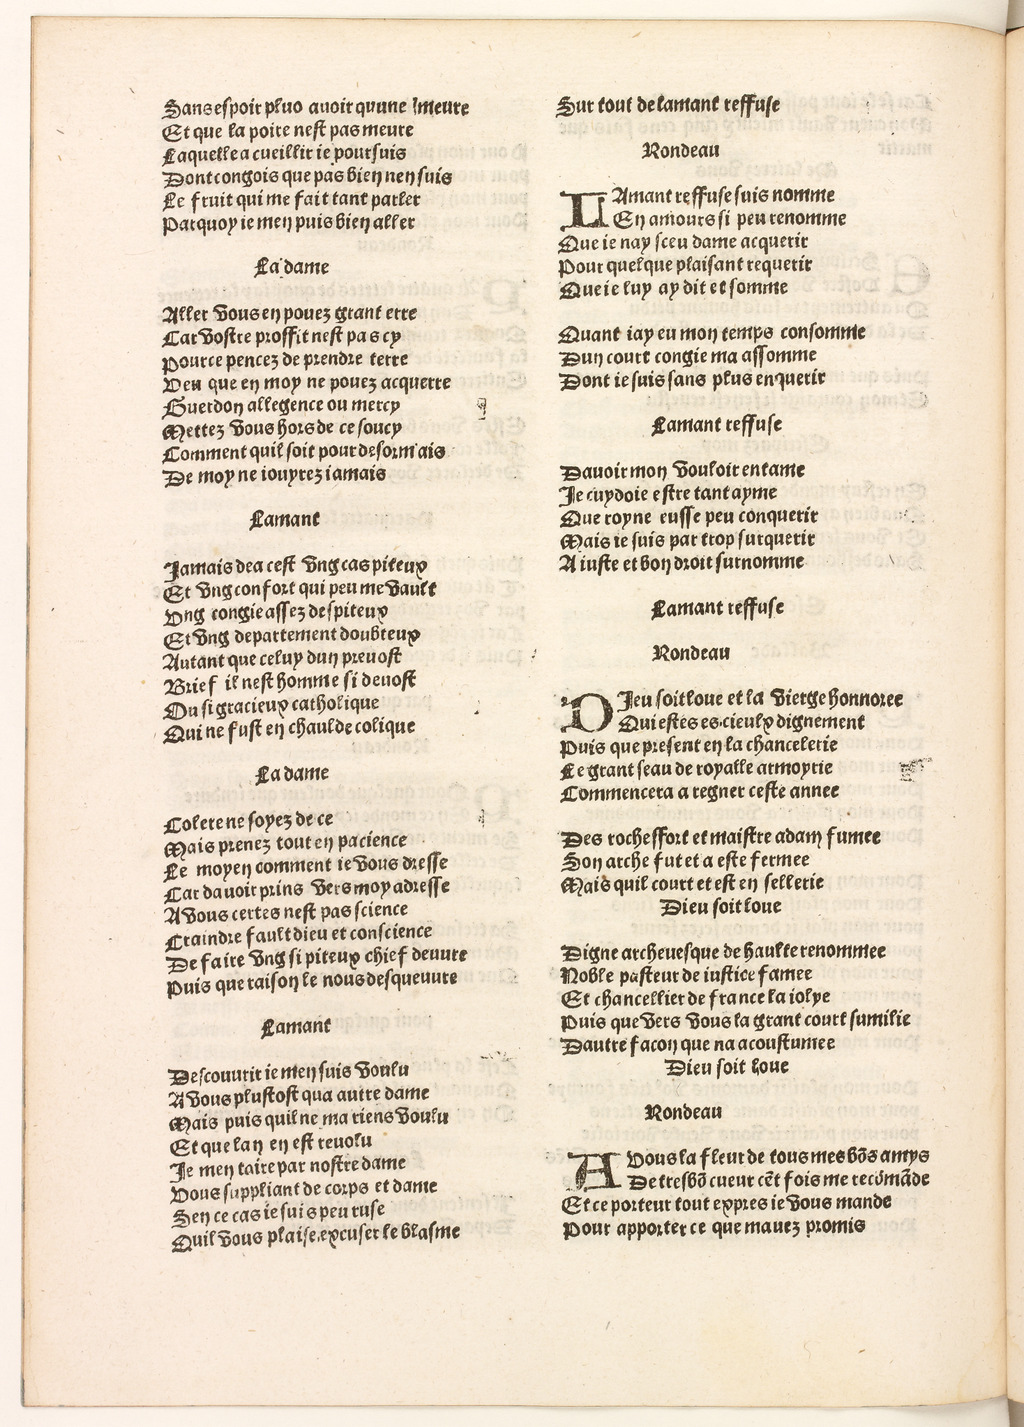 Sans espoir pluo auoir quune lmeure
Et que la poire nest pas meure
Laquelle a cueillir ie poursuis
Dont congois que pas bien nen suis
Le fruit qui me fait tant parler
Parquoy ie men puis bien aller
La dame
Aller vous en pouez grant erre
Car vostre proffit nest pas cy
Pource pencez de prendre terre
Veu que en moy ne pouez acquerre
Guerdon allegence ou mercy
Mettez vous hors de ce soucy
Comment quil soit pour desormais
De moy ne iouyrez iamais
Lamant
Jamais dea cest vng cas piteux
Et vng confort qui peu me vault
Vng congie assez despiteux
Et vng departement doubteux
Autant que celuy dun preuost
Brief il nest homme si deuost
Ou si gracieux catholique
Qui ne fust en chaulde colique
La dame
Colere ne soyez de ce
Mais prenez tout en pacience
Le moyen comment ie vous dresse
Car dauoir prins vers moy adresse
A vous certes nest pas science
Craindre fault dieu et conscience
De faire vng si piteux chief deuure
Puis que raison le nous desqueuure
Lamant
Descouurir ie men suis voulu
A vous plustost qua autre dame
Mais puis quil ne ma riens voulu
Et que lan en est reuolu
Je men taire par nostre dame
Vous suppliant de corps et dame
Sen ce cas ie suis peu ruse
Quil vous plaise excuser le blasme
Sur tout de lamant reffuse
Rondeau
LAmant reffuse suis nomme
En amours si peu renomme
Que ie nay sceu dame acquerir
Pour quelque plaisant requerir
Que ie luy ay dit et somme
Quant iay eu mon temps consomme
Dun court congie ma assomme
Dont ie suis sans plus enquerir
Lamant reffuse
Dauoir mon vouloir entame
Je cuydoie estre tant ayme
Que royne eusse peu conquerir
Mais ie suis par trop surquerir
A iuste et bon droit surnomme
Lamant reffuse
Rondeau
DJeu soit loue et la vierge honnoree
Qui estes es cieulx dignement
Puis que present en la chancelerie
Le grant seau de royalle armoyrie
Commencera a regner ceste annee
Des rocheffort et maistre adam fumee
Son arche fut et a este fermee
Mais quil court et est en sellerie
Dieu soit loue
Digne archeuesque de haulte renommee
Noble pasteur de iustice famee
Et chancellier de france la iolye
Puis que vers vous la grant court sumilie
Dautre facon que na acoustumee
Dieu soit loue
Rondeau
A Vous la fleur de tous mes bõs amys
De tresbõ cueur cẽt fois me recõmãde
Et ce porteur tout expres ie vous mande
Pour apporter ce que mauez promis